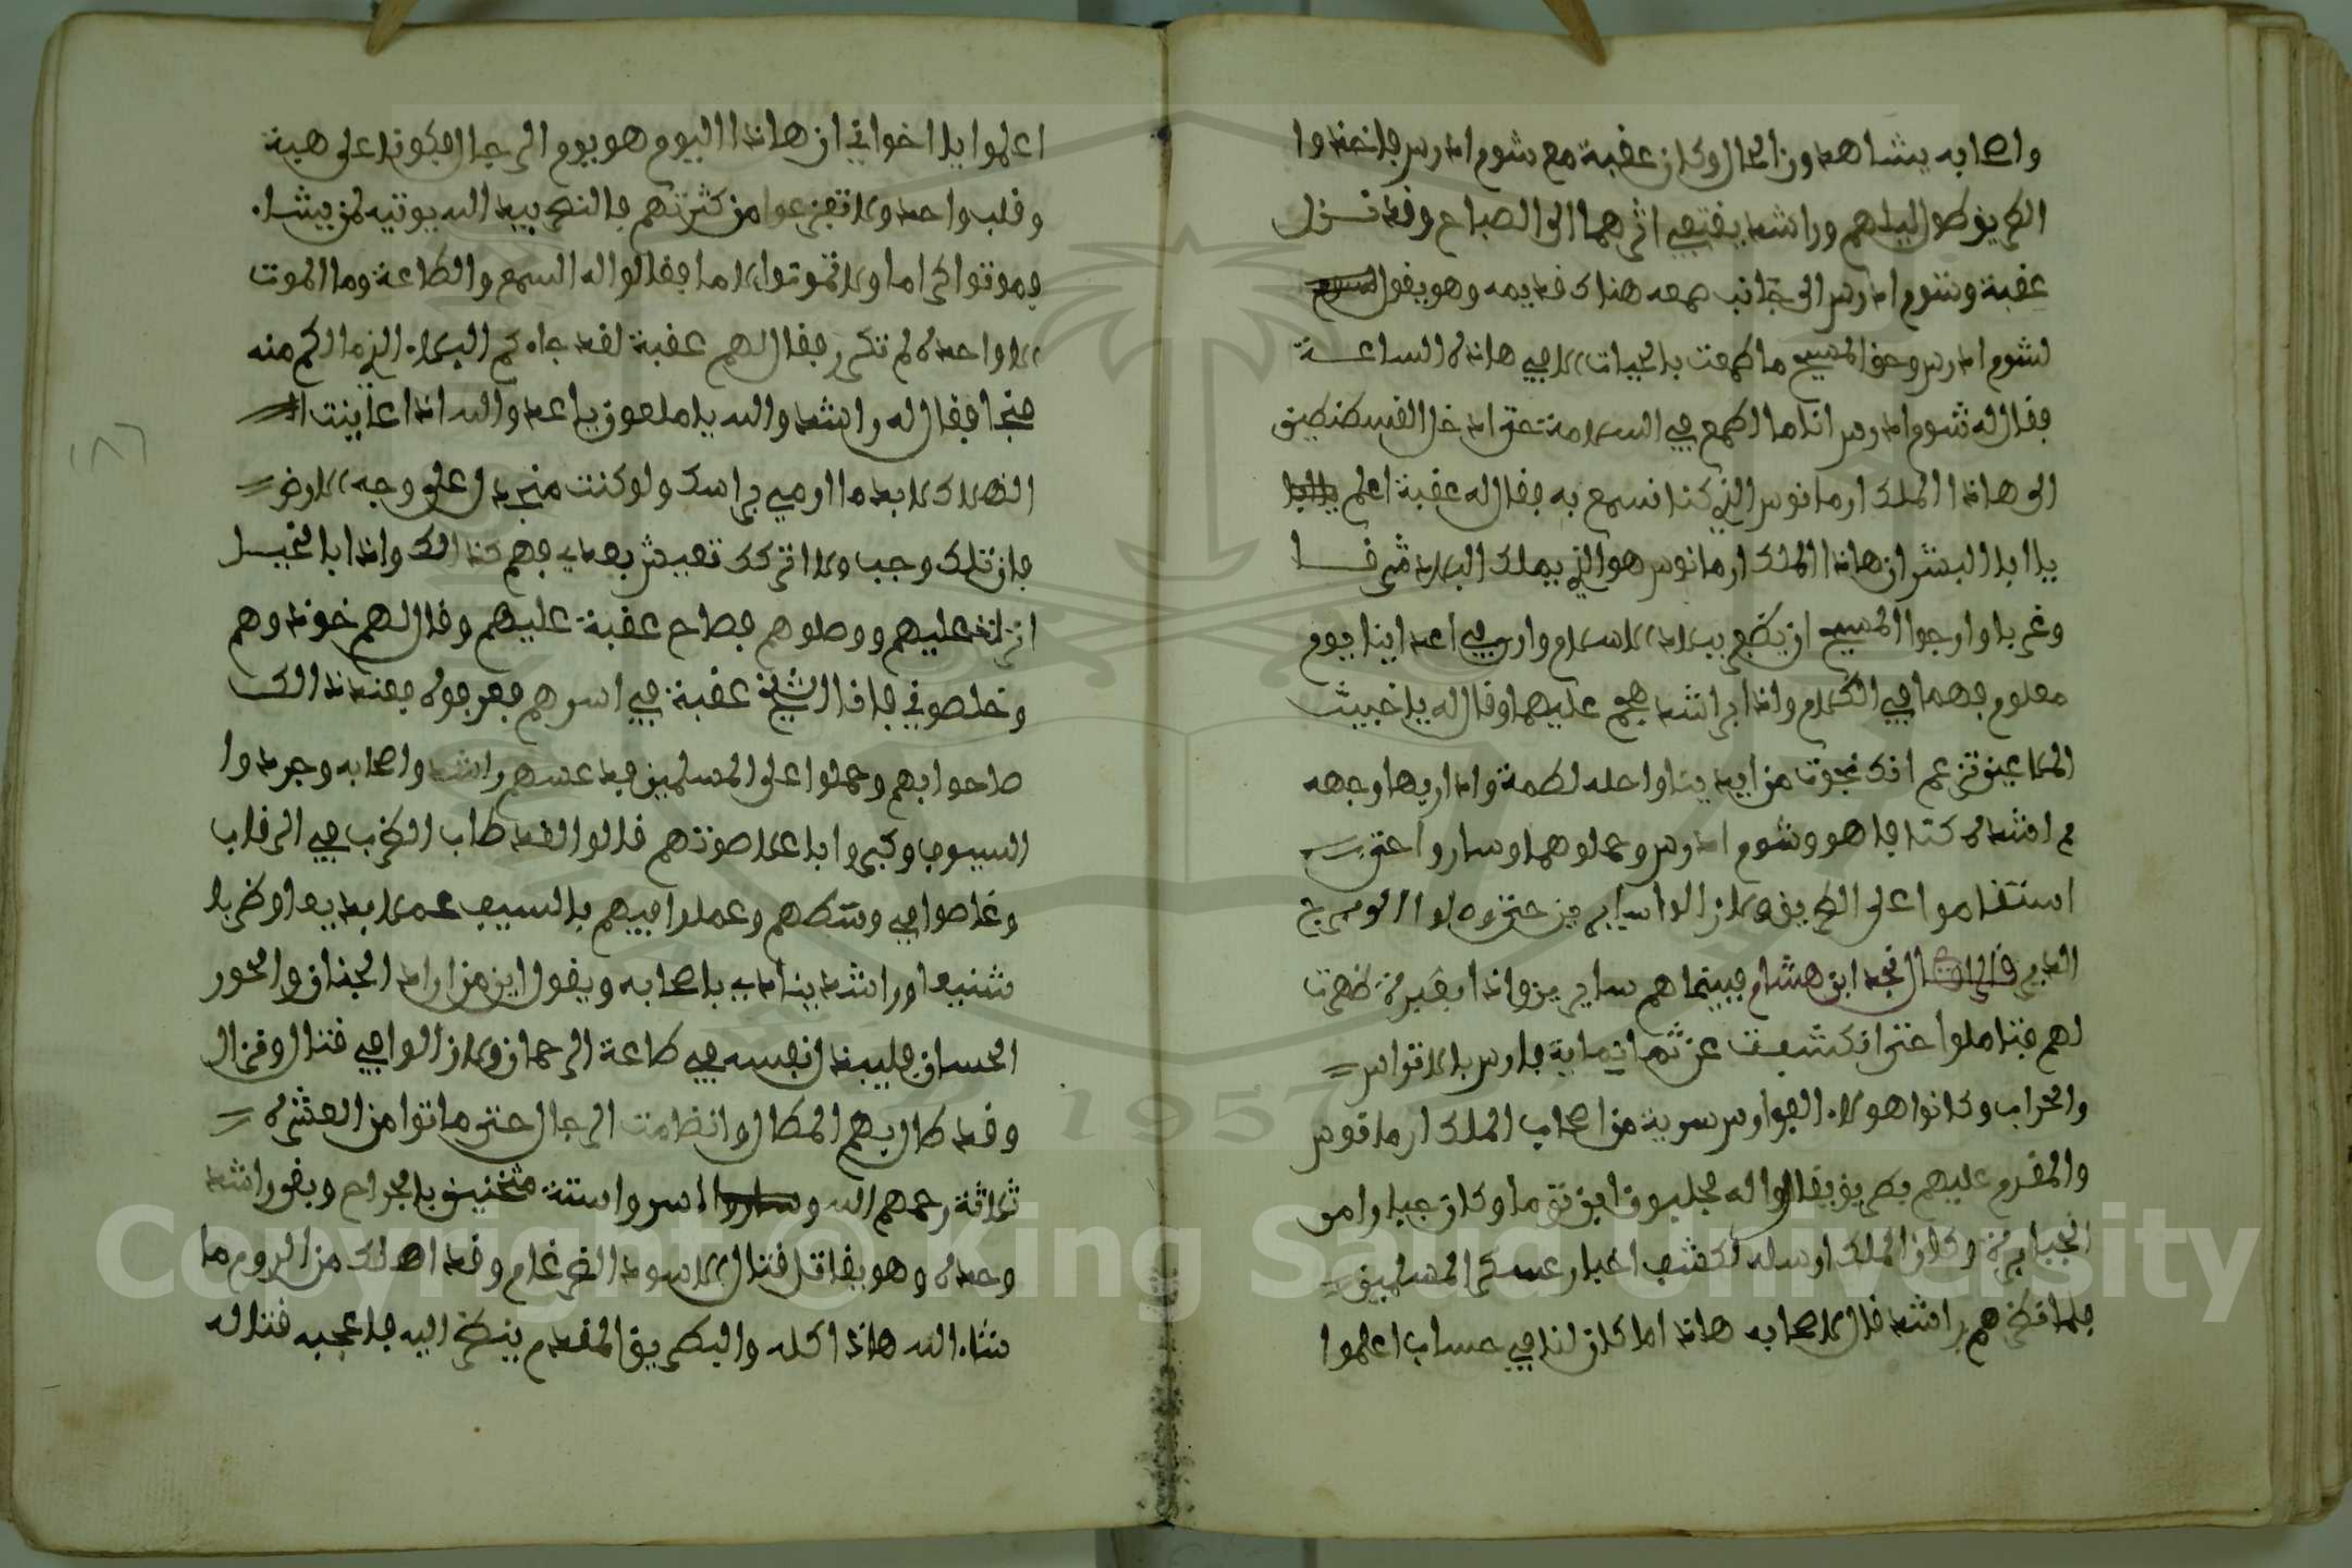 واصحابه يشاهدون الحال وكان عقبة مع شوم ادرس فاخذوا
الطريق طول ليلهم وراشد يقتفي اثرهما الى الصباح وقد نزل
عقبة وشوم ادرس الى جانب صمعه هناك قديمه وهو يقول
لشوم ادرس وحق المسيح ما طمعت بالحيات الا في هاذه الساعة
فقال له شوم ادرس انا ما اطمع في السلامة حتى ادخل القسطنطين
الى هاذا الملك ارمانوس الذي كنا نسمع به فقال له عقبة اعلم
يا ابا البشر ان هاذا الملك ارمانوس هو الذي يملك البلاد شرقا
وغربا وارجوا المسيح ان يظفر ببلاد الاسلام واري في اعداينا يوم
معلوم فهما في الكلام واذا براشد هجم عليهما وقال له يا خبيث
الملاعين تزعم انك نجوت من ايدينا واحله لطمة وادار بها وجهه
ثم اشده كتافا هو وشوم ادرس وحملوهما وساروا حتى
استقاموا على الطريق ولا زالوا سايرين حتى وصلوا الى مرج
قال نجد ابن هشام فبينما هم سايرين واذا بغبرة ظهرت
لهم فتاملوا حتى انكشفت عن ثمانماية فارس بالاتراس
والحراب وكانوا هولاء الفوارس سرية من اصحاب الملك ارمانوس
والمقدم عليهم بطريق يقالوا له مجليون ابن توما وكان جبارا من
الجبابرة وكان الملك ارسله لكشف اخبار عسكر المسلمين
فلما نظرهم راشد قال لاصحابه هاذا ما كان لنا في حساب اعلموا
اعلموا يا اخواني ان هاذا اليوم هو يوم الرجال فكونوا على هبة
وقلب واحد ولا تفزعوا من كثرتهم فالنصر بيد الله يوتيه لمن يشاء
فموتوا كراما ولا تموتوا لاما فقالوا له السمع والطاعة وما الموت
الا واحدة لم تكرر فقال لهم عقبة لقد جاءكم البلاء الذي ما لكم منه
منجا فقال له راشد والله يا ملعون يا عدو الله اذا عاينت
الهلاك لا بد ما ارمي براسك ولو كنت منجدل على وجه الارض
فان قتلك وجب ولا اتركك تعيش بعدي فهم كذالك واذا بالخيل
ادركت عليهم ووصلوهم فصاح عقبة عليهم وقال لهم خوذوهم
وخلصوني فانا الشيخ عقبة في اسرهم فعرفوه فعند ذالك
صاحوا بهم وحملوا على المسلمين فدعسهم راشد واصحابه وجردوا
السيوف وكبروا باعلا صوتهم قالوا لقد طاب الضرب في الرقاب
وغاصوا في وسطهم وعملوا فيهم بالسيف عملا بديعا وضربا
شنيعا وراشد ينادي باصحابه ويقول اين من اراد الجنان والحور
الحسان فليبذل نفسه في طاعة الرحمان ولا زالوا في قتال ونزال
وقد طال بهم المطال وانظامت الرجال حتى ماتوا من العشرة
ثلاثة رحمهم الله واسروا ستة مثخنين بالجراح وبقي راشد
وحده وهو يقاتل قتال الاسود الضرغام وقد اهلك من الروم ما
شاء الله هاذا كله والبطريق المقدم ينظر اليه فاعجبه قتاله
١٨٦
Copyright © King Saud University
1957